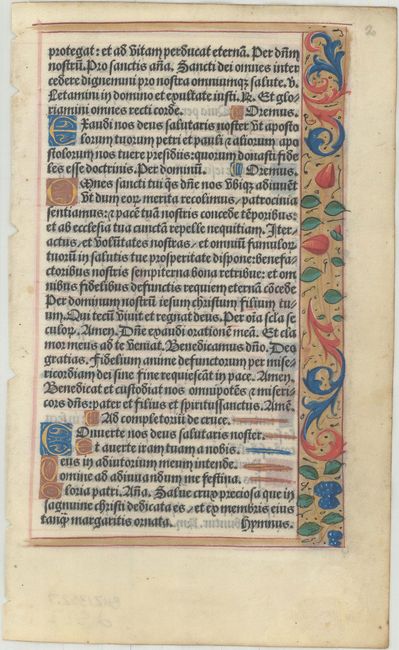 protegat: et ad vitam perducat eternā. Per dn̄m
nostrū. Pro sanctis aña. Sancti dei omnes inter
cedere dignemini pro nostra omniumq; salute. v.
Letamini in domino et exultate iusti. R. Et glo-
riamini omnes recti corde. Oremus.
Exaudi nos deus salutaris noster vt aposto
lorum tuorum petri et pauli & aliorum apo
stolorum nos tuere presidiis: quorum donasti fide
les esse doctrinis. Per dominū. Oremus.
Omnes sancti tui q̄s dn̄e nos vbiq; adiuuēt
vt dum eor̄ merita recolimus, patrocinia
sentiamus: & pacē tuā nostris concede tēporibus:
et ab ecclesia tua cunctā repelle nequitiam. Iter-
actus, et volūtates nostras, et omniū famulor̄
tuorū in salutis tue prosperitate dispone: benefa-
ctoribus nostris sempiterna bona retribue: et om
nibus fidelibus defunctis requiem eternā cōcede
Per dominum nostrū iesum christum filium tu-
um. Qui tecū viuit et regnat deus. Per oīa scl̄a se
culor̄. Amen. Dn̄e exaudi orationē meā. Et cla
mor meus ad te veniat. Benedicamus dn̄o. Deo
gratias. Fidelium anime defunctorum per mise-
ricordiam dei sine fine requiescāt in pace. Amen.
Benedicat et custodiat nos omnipotēs & miseri-
cors dn̄s: pater et filius et spiritussanctus. Amē.
Ad completoriū de cruce.
Conuerte nos deus salutaris noster.
Et auerte iram tuam a nobis.
Deus in adiutorium meum intende.
Domine ad adiuuandum me festina.
Gloria patri. Aña. Salue crux preciosa que in
sanguine christi dedicata es, et ex membris eius
tanq̄ margaritis ornata. Hymnus.